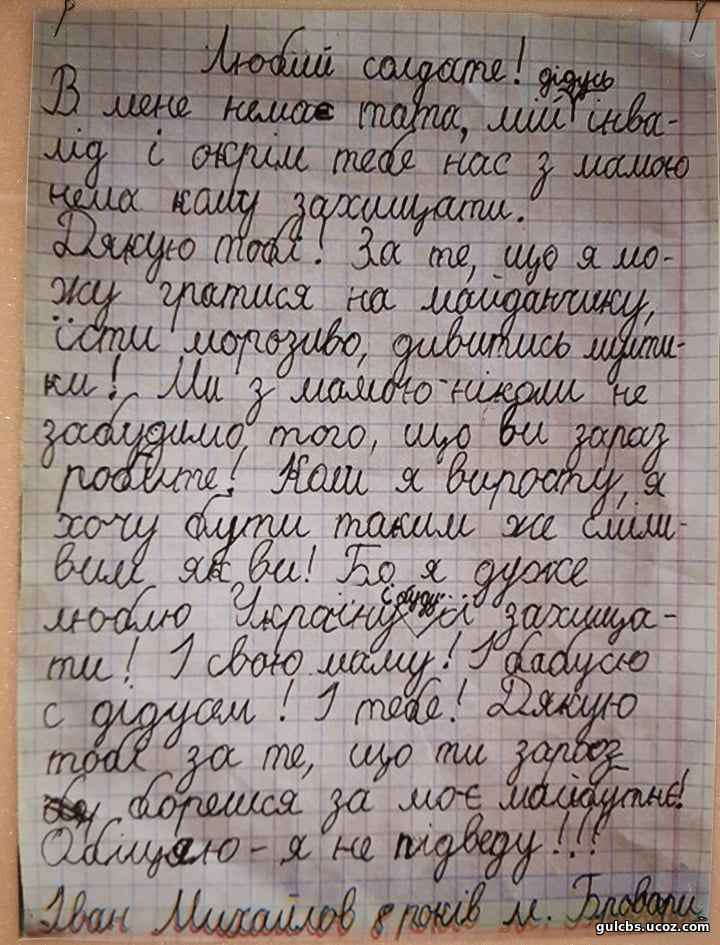 Любий солдате!
дідусь
В мене немає тата, мій інва-
лід і окрім тебе нас з мамою
нема кому захищати.
Дякую тобі! За те, що я мо-
жу гратися на майданчику,
їсти морозиво, дивитись мульти-
ки! Ми з мамою ніколи не
забудимо, того, що ви зараз
робите! Коли я виросту, я
хочу бути таким же сміли-
вим як ви! Бо я дуже
і буду
люблю Україну її захища-
ти! І свою маму! І бабусю
с дідусем! І тебе! Дякую
тобі за те, що ти зараз
борешся за моє майбутнє!
Обіцяю - я не підведу!!!
Іван Михайлов 8 років м. Бровари
gulcbs.ucoz.com